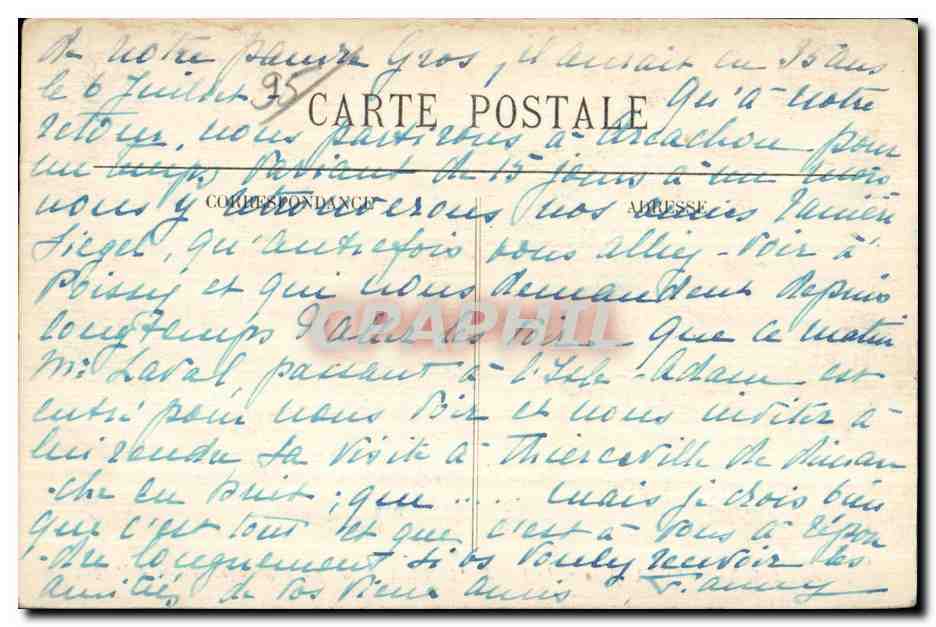 de notre pauvre Gros, il aurait eu 35 ans
le 6 Juillet. Qu'à notre
95
CARTE POSTALE
retour, nous partirons à Arcachon pour
un temps variant de 15 jours à un mois
CORRESPONDANCE ADRESSE
nous y retrouverons nos amis
Siegel, qu'autrefois vous alliez voir à
Poissy et qui nous demandent depuis
longtemps d'aller les voir. Que ce matin
CRAPHIL
Mr Laval, passant à l'Isle-Adam est
entré pour nous voir et nous inviter à
lui rendre sa visite à Thierceville de diman
-che en huit; que ..... mais je crois bien
que c'est tout et que c'est à vous à répon
-dre longuement si vs voulez recevoir les
amitiés de vos vieux amis Fanny